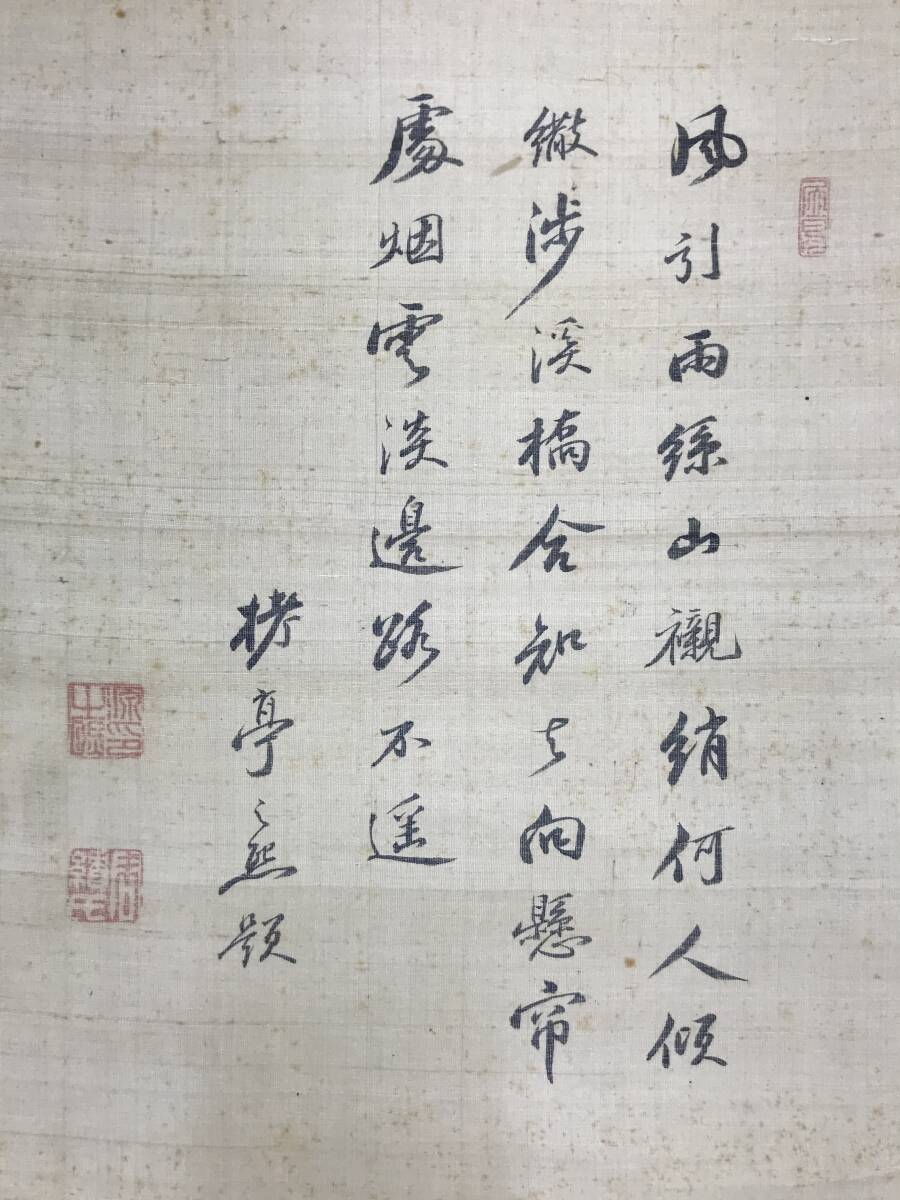 風引雨絲山襯綃何人傾
繖涉溪橋合知直向懸帘
處烟雲淡邊路不遥
栲亭之熙題